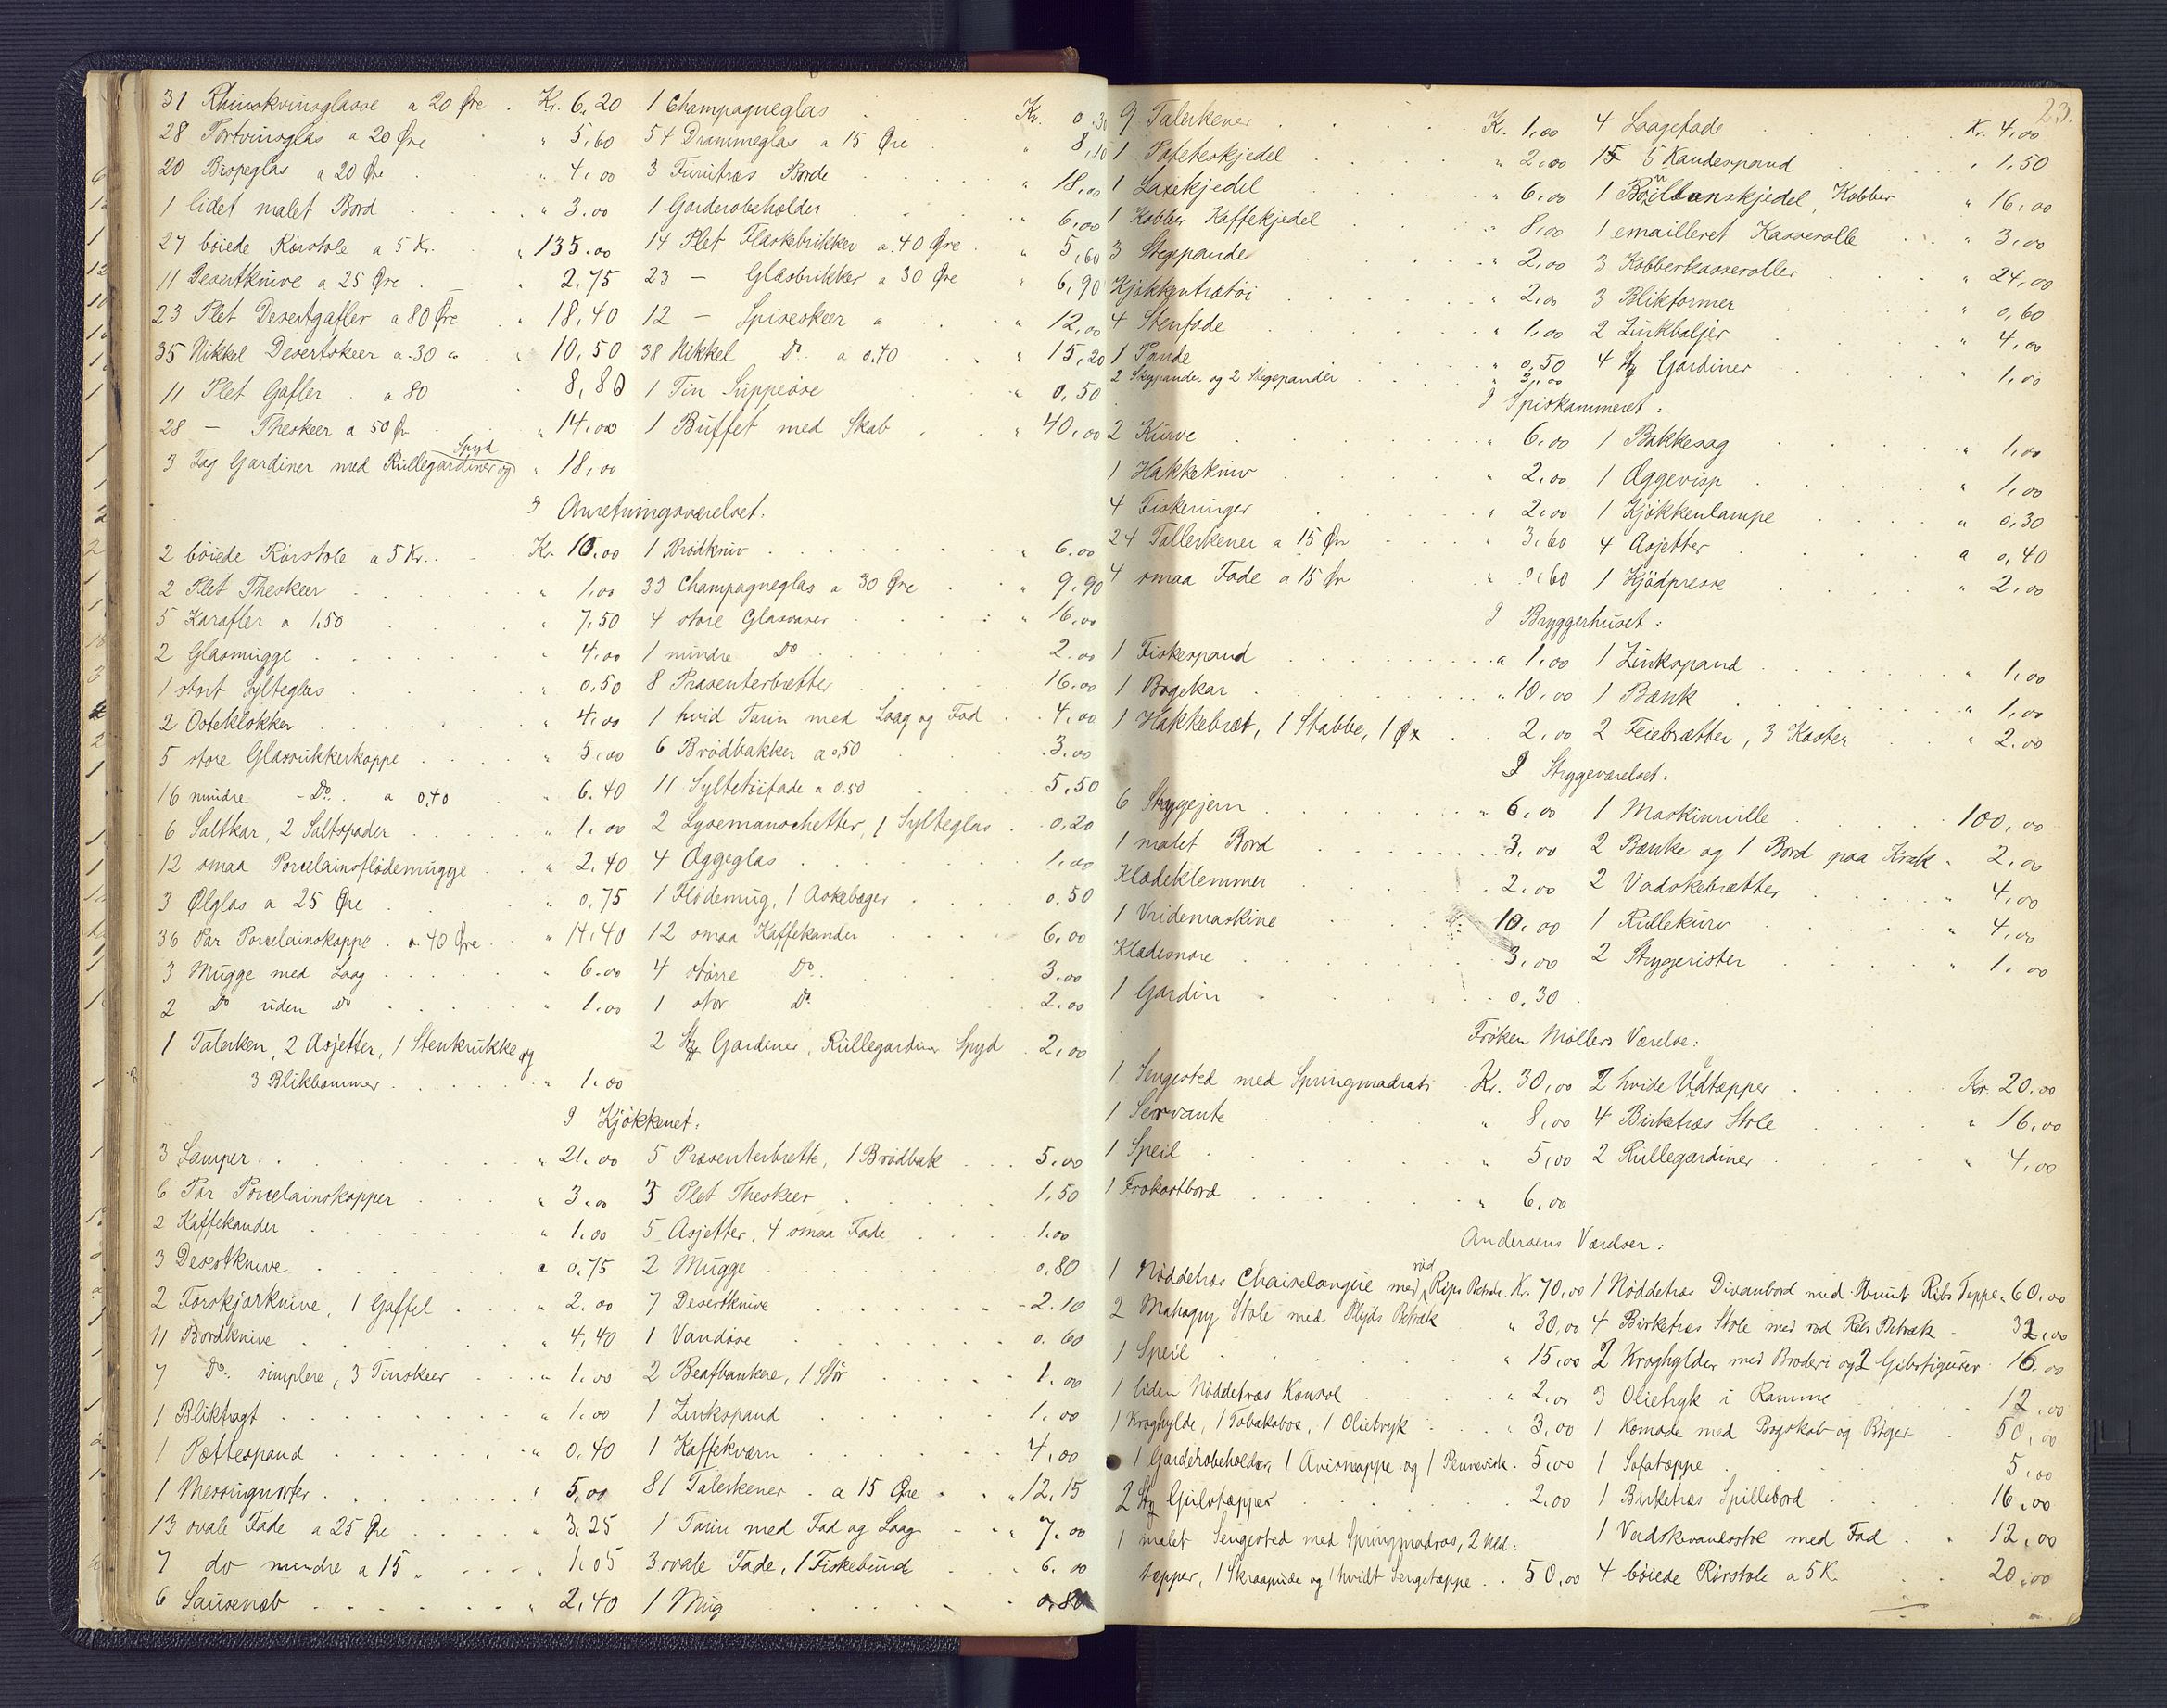 31 Rhinskvinsglasse a 20 Øre . Kr. 6,20
28 Portvinsglas a 20 Øre " 5,60
20 Bispeglas a 20 Øre " 4,00
1 lidet malet Bord " 3,00
27 böiede Rörstole a 5 Kr. " 135,00
11 Desertknive a 25 Øre . 2,75
23 Plet Desertgafler a 80 Øre " 18,40
35 Nikkel Desertskeer a 30 " " 10,50
11 Plet Gafler . a 80 8,80
28 — Theskeer a 50 Ør " 14,00
Spyd
3 Fag Gardiner med Rullegardiner og " 18,00
1 Champagneglas Kr. 0,30
54 Drammeglas a 15 Øre " 8,10
3 Furutræs Borde " 18,00
1 Garderobeholder 6,00
14 Plet Flaskebrikker a 40 Øre " 5,60
23 — Glasbrikker a 30 Øre " 6,90
12 — Spiseskeer a " 12,00
38 Nikkel Do. a 0,40 " 15,20
1 Tin Suppeöse " 0,50
1 Buffet med Skab " 40,00
I Anretningsværelset.
2 böiede Rörstole a 5 Kr. Kr. 10,00
2 Plet Theskeer " 1,00
5 Karafler a 1,50 " 7,50
2 Glasmugge " 4,00
1 stort Sylteglas " 0,50
2 Osteklokker " 4,00
5 store Glassukkerkoppe " 5,00
16 mindre - Do. a 0,40 " 6,40
6 Saltkar, 2 Saltspader " 1,00
12 smaa Porcelainsflödemugge " 2,40
3 Ølglas a 25 Øre " 0,75
36 Par Porcelainskoppe . a 40 Øre " 14,40
3 Mugge med Laag " 6,00
2 Do uden Do " 1,00
1 Talerken, 2 Asjetter, 1 Stenkrukke og
3 Blikbommer " 1,00
1 Brödkniv " 6,00
33 Champagneglas a 30 Øre " 9,90
4 store Glasvaser " 16,00
1 mindre Do 2,00
8 Præsenterbrætter 16,00
1 hvid Tarin med Laag og Fad . 4,00
6 Brödbakker a 0,50 3,00
11 Syltetöifade a 0,50 5,50
2 Lysemanschetter, 1 Sylteglas . 0,20
4 Æggeglas 1,00
1 Flödemug, 1 Askebæger 0,50
12 smaa Kaffekander 6,00
4 större Do. 3,00
1 stor Do. 2,00
2 Stk Gardiner, Rullegardiner Spyd . 2,00
I Kjökkenet:
3 Lamper " 21,00
6 Par Porcelainskopper " 3,00
2 Kaffekander " 1,00
3 Desertknive a 0,75
2 Forskjærknive, 1 Gaffel " 2,00
11 Bordknive " 4,40
7 Do. simplere, 3 Tinskeer " 1,00
1 Bliktragt " 1,00
1 Pottespand " 0,40
1 Messingmorter " 5,00
13 ovale Fade a 25 Øre " 3,25
7 do mindre a 15 " 1,05
6 Sausenæb " 2,40
5 Præsenterbrette, 1 Brödbak 5,00
3 Plet Theskeer 1,50
5 Asjetter, 4 smaa Fade 1,00
2 Mugge 0,80
7 Desertknive 2,10
1 Vandöse 0,60
2 Beafbankere, 1 Stör 1,00
1 Zinkspand 1,00
1 Kaffekværn 4,00
81 Talerkener . a 15 Øre " 12,15
1 Tarin med Fad og Laag " 7,00
3 ovale Fade, 1 Fiskebund 6,00
1 Mug 0,80
23.
9 Talerkener Kr. 1,00
1 Poteteskjedel " 2,00
1 Laxekjedel " 6,00
1 Kobber Kaffekjedel " 8,00
3 Stegpande " 2,00
Kjökkentrætöi " 2,00
4 Stenfade " 1,00
1 Pande " 0,50
2 Skypander og 2 Stegepander " 3,00
4 Laagefade Kr. 4,00
15 5 Kandespand " 1,50
1 Bouillonskjedel, Kobber " 16,00
1 emailleret Kasserolle " 3,00
3 Kobberkasseroller " 24,00
3 Blikformer " 0,60
2 Zinkbaljer " 4,00
4 Stk Gardiner " 1,00
I Spiskammeret.
2 Kurve " 6,00
1 Hakkekniv " 2,00
4 Fiskeringer " 2,00
24 Tallerkener a 15 Ør " 3,60
4 smaa Fade a 15 Ør " 0,60
1 Bakkesag " 1,00
1 Æggevisp " 1,00
1 Kjökkenlampe " 0,30
4 Asjetter a 0,40
1 Kjödpresse " 2,00
I Bryggerhuset:
1 Fiskespand a 1,00
1 Bögekar " 10,00
1 Hakkebræt, 1 Stabbe, 1 Øx . 2,00
1 Zinkspand " 1,00
1 Bænk " 1,00
2 Feiebrætter, 3 Koster " 2,00
I Strygeværelset:
6 Strygejern " 6,00
1 malet Bord 3,00
Klædeklemmer 2,00
1 Vridemaskine 10,00
Klædesnore 3,00
1 Gardin 0,30
1 Maskinrulle 100,00
2 Bænke og 1 Bord paa Kræk " 2,00
2 Vadskebrætter " 4,00
1 Rullekurv " 4,00
2 Strygerister " 1,00
Fröken Möllers Værelse:
1 Sengested med Springmadrats Kr. 30,00
1 Servante " 8,00
1 Speil " 5,00
1 Frokostbord " 6,00
2 hvide Uldtæpper Kr. 20,00
4 Birketræs Stole " 16,00
2 Rullegardiner " 4,00
Andersens Værelser:
röd
1 Nöddetræs Chaiselongue med Rips Betræk. Kr. 70,00
2 Mahogny Stole med Plyds Betræk " 30,00
1 Speil " 15,00
1 liden Nöddetræs Konsol " 2,00
1 Kroghylde, 1 Tobaksbox, 1 Olietryk " 3,00
1 Garderobeholder, 1 Avismappe og 1 . 5,00
2 Stk Gulvtæpper 2,00
1 malet Sengested med Springmadras, 2 Uld:
tæpper, 1 Skraapude og 1 hvidt Sengetæppe . . 50,00
1 Nöddetræs Divanbord med Ribs Teppe " 60,00
4 Birketræs Stole med röd Rebs Betræk . 32,00
2 Kroghylder med Broderi og 2 Gibsfigurer . 16,00
3 Olietryk i Ramme 12,00
1 Komode med Bogskab og Böger . 50,00
1 Sofatæppe 5,00
1 Birketræs Spillebord 16,00
1 Vadskevandsstol med Fad . " 12,00
4 böiede Rörstole a 5 K. 20,00